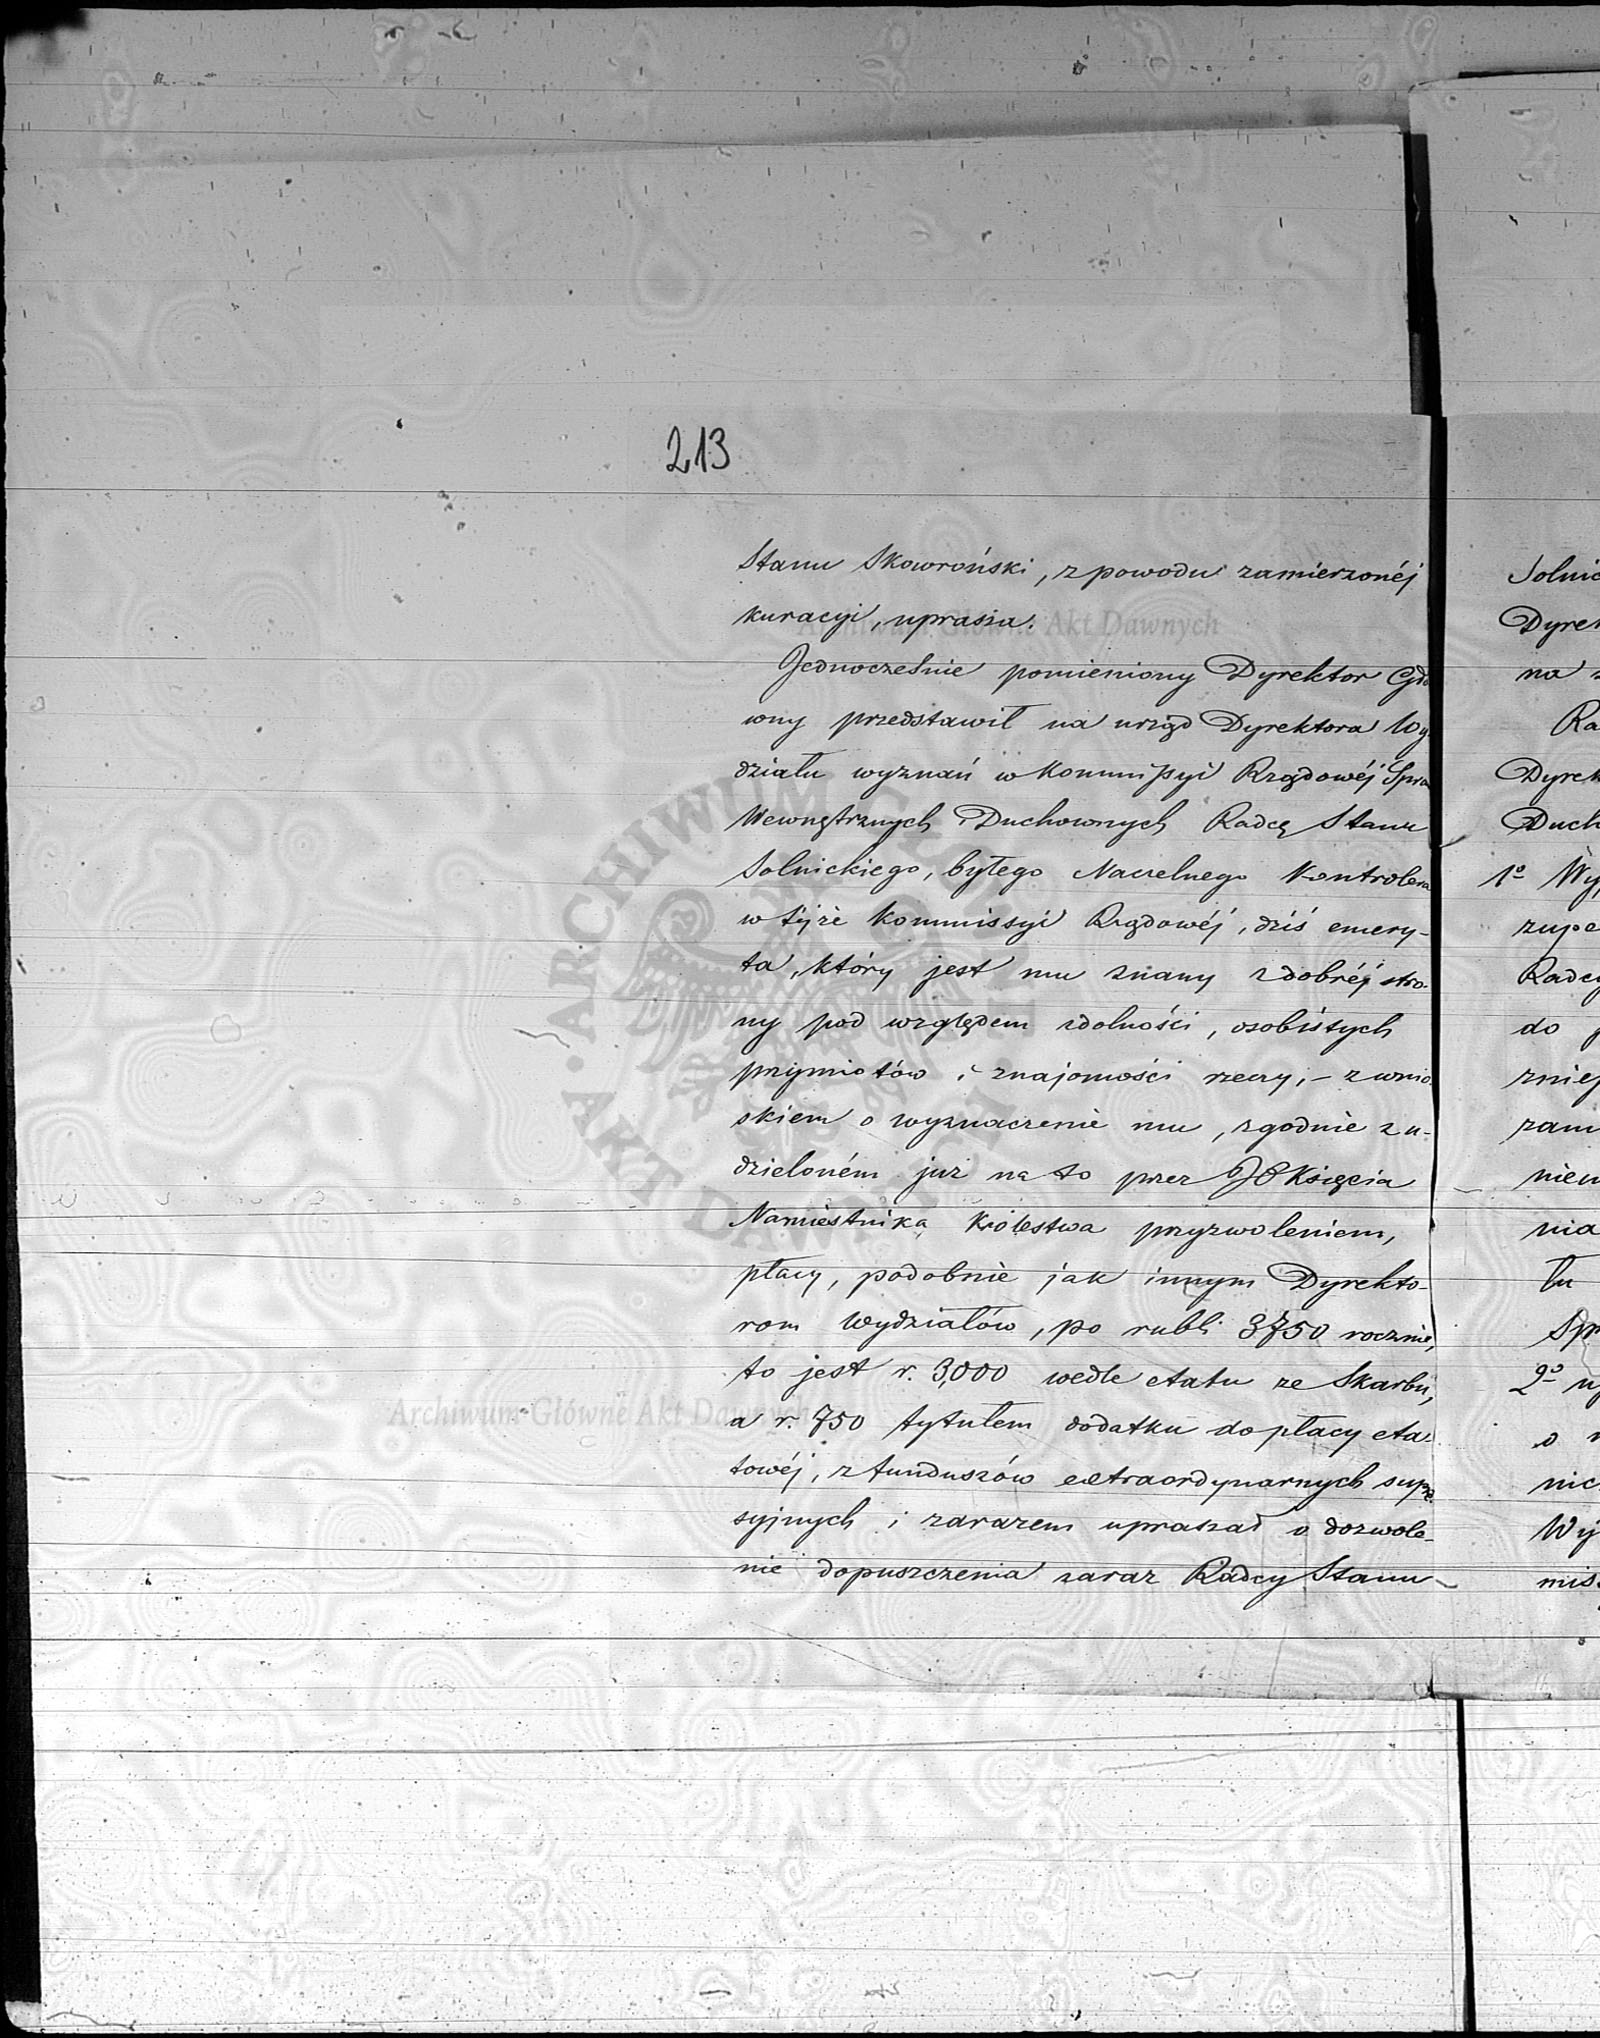 213
Stanu Skowroński, z powodu zamierzonéj
kuracyi, uprasza.
Jednocześnie pomieniony Dyrektor Głó
wny przedstawił na urząd Dyrektora Wy
działu wyznań w Kommissyi Rządowéj Spra
Wewnętrznych i Duchownych Radcę Stanu
Solnickiego, byłego Naczelnego Kontrolera
w téjże Kommissyi Rządowéj, dziś emery-
ta, który jest mu znany z dobréj stro-
ny pod względem zdolności, osobistych
przymiotów i znajomości rzeczy, – z wnio-
skiem o wyznaczenie mu, zgodnie z u-
dzieloném już na to przez JO Księcia
Namiestnika Królestwa przyzwoleniem,
płacy, podobnie jak innym Dyrekto-
rom Wydziałów, po rubli 3750 rocznie,
to jest r. 3,000 wedle etatu ze Skarbu,
a r. 750 tytułem dodatku do płacy eta-
towéj, z funduszów extraordynarnych supre-
syjnych i zarazem upraszał o dozwole-
nie dopuszczenia zaraz Radcy Stanu
Solnic
Dyrek
na
Ra
Dyrek
Duch
1º Wy
zupe
Radcy
do
zniej
zam
niem
nia
łu
Spr
2º
o
nic
Wy
mis
ARCHIWUM GŁÓWNE AKT DAWNYCH
Archiwum Główne Akt Dawnych
Archiwum Główne Akt Dawnych